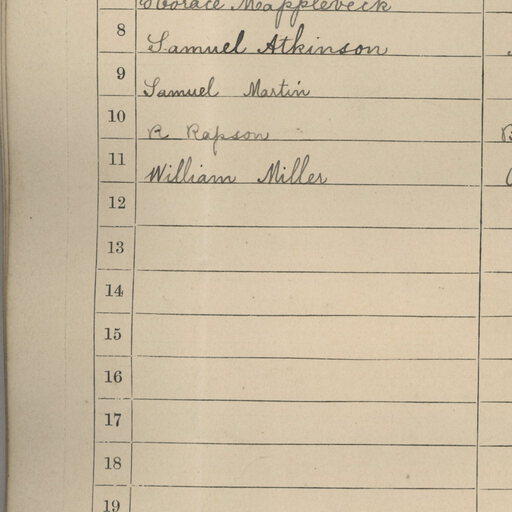 Horace Mapplebeck
8 Samuel Atkinson
9 Samuel Martin
10 R Rapson
11 William Miller
12
13
14
15
16
17
18
19